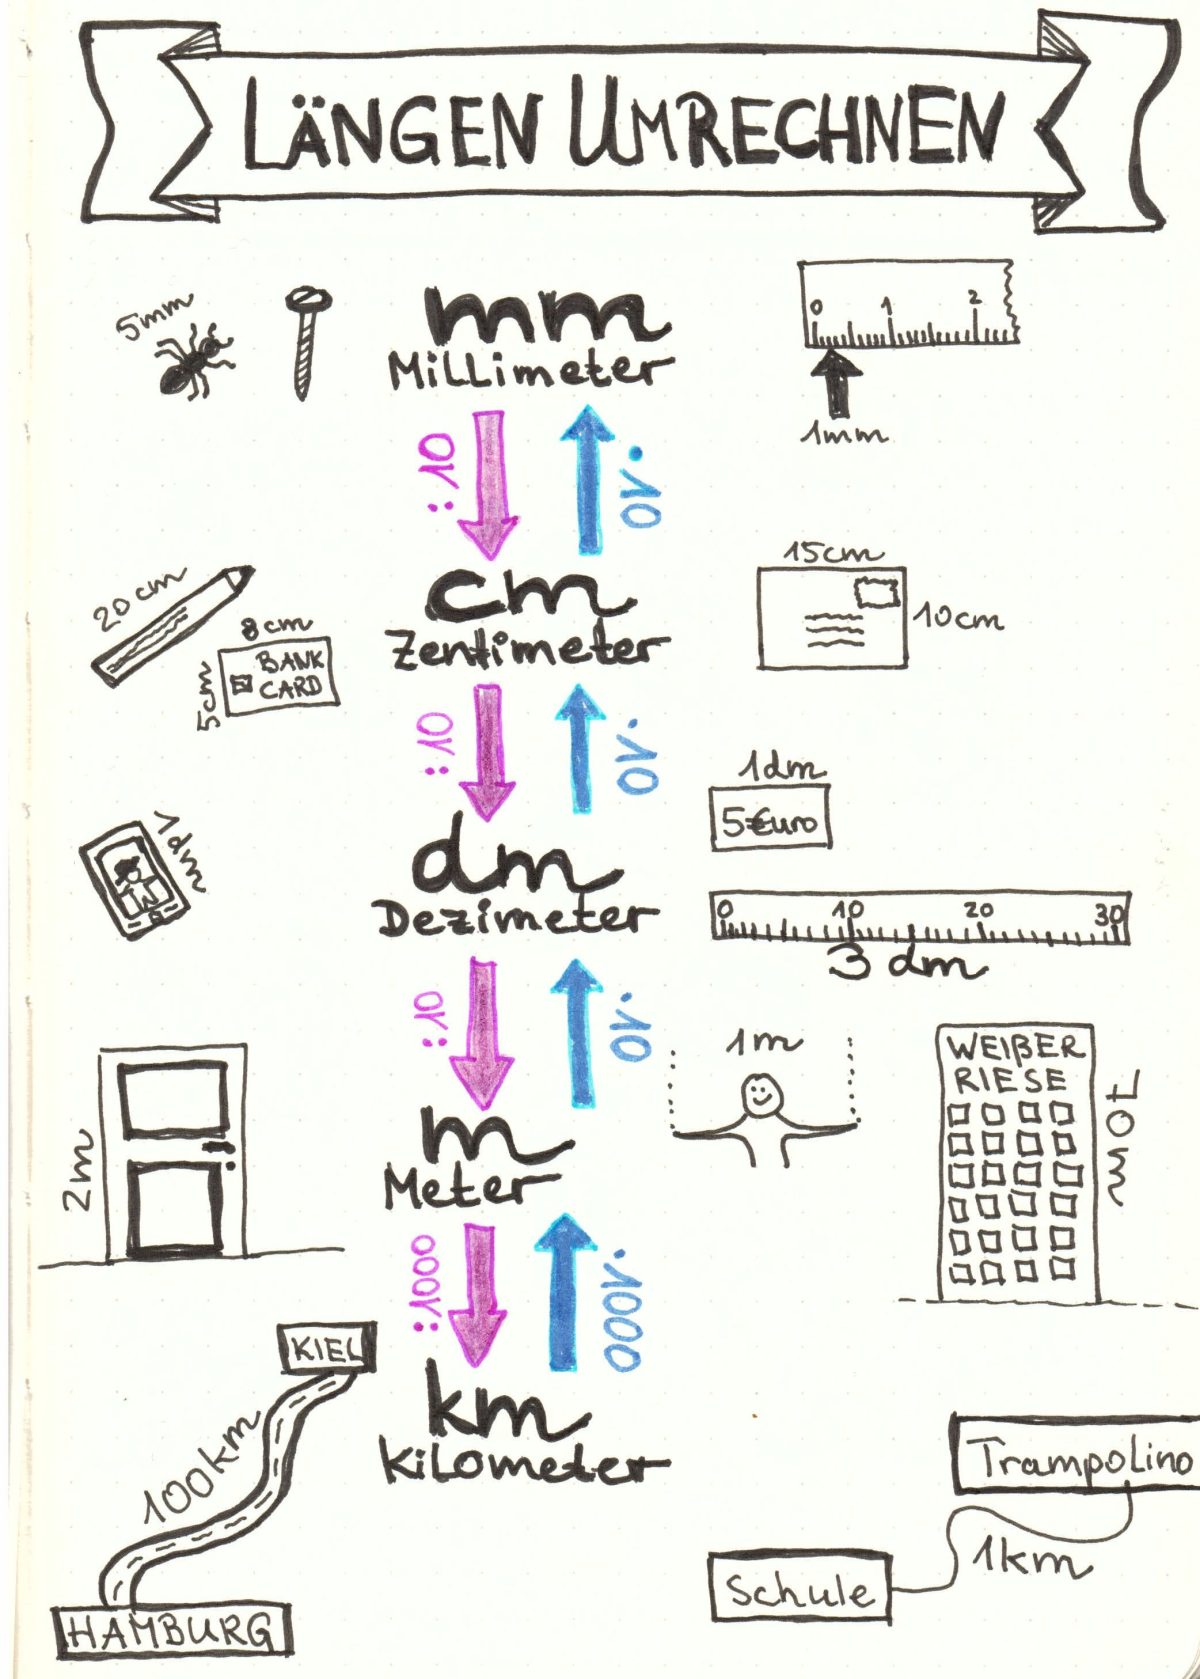 LÄNGEN UMRECHNEN
5mm
mm
Millimeter
0 1 2
1mm
:10
·10
20cm
8cm
5cm
BANK
CARD
cm
Zentimeter
15cm
10cm
:10
·10
1dm
dm
Dezimeter
1dm
5€uro
0 10 20 30
3 dm
:10
·10
2m
m
Meter
1m
WEIßER
RIESE
70m
:1000
·1000
KIEL
100km
HAMBURG
km
Kilometer
Trampolino
1km
Schule